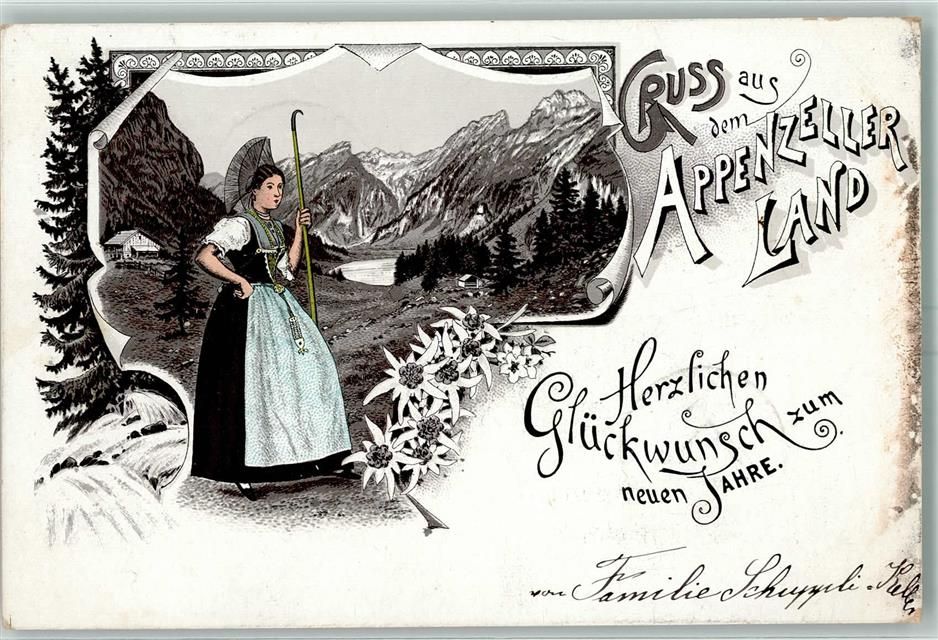 GRUSS aus
dem
APPENZELLER
LAND
Herzlichen
Glückwunsch zum
neuen JAHRE.
von Familie Schuppli-Keller